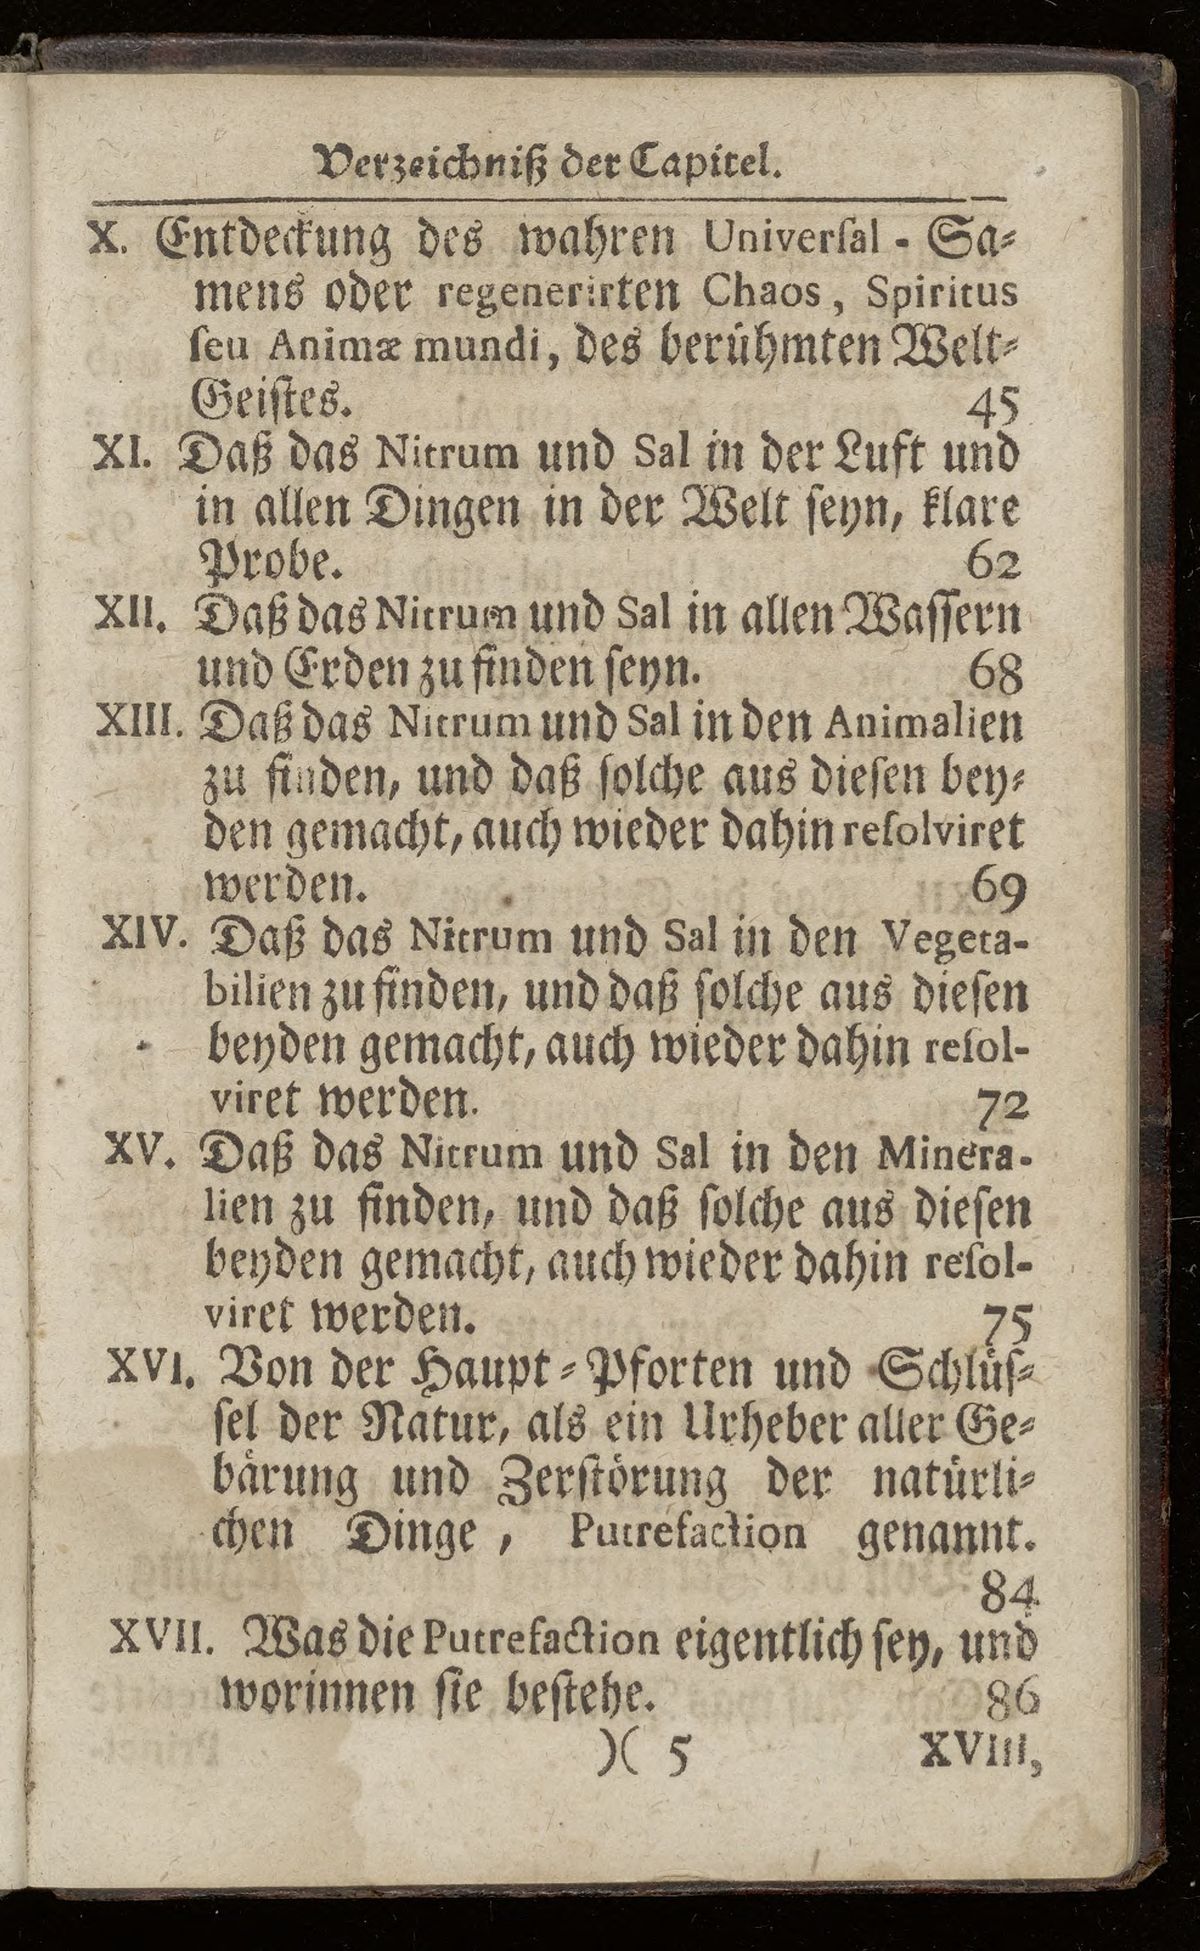 Verzeichniß der Capitel.
X. Entdeckung des wahren Universal - Sa⸗
mens oder regenerirten Chaos, Spiritus
seu Animæ mundi, des berühmten Welt⸗
Geistes. 45
XI. Daß das Nitrum und Sal in der Luft und
in allen Dingen in der Welt seyn, klare
Probe. 62
XII. Daß das Nitrum und Sal in allen Wassern
und Erden zu finden seyn. 68
XIII. Daß das Nitrum und Sal in den Animalien
zu finden, und daß solche aus diesen bey⸗
den gemacht, auch wieder dahin resolviret
werden. 69
XIV. Daß das Nitrum und Sal in den Vegeta-
bilien zu finden, und daß solche aus diesen
beyden gemacht, auch wieder dahin resol-
viret werden. 72
XV. Daß das Nitrum und Sal in den Minera-
lien zu finden, und daß solche aus diesen
beyden gemacht, auch wieder dahin resol-
viret werden. 75
XVI. Von der Haupt⸗Pforten und Schlüs⸗
sel der Natur, als ein Urheber aller Ge⸗
bärung und Zerstörung der natürli⸗
chen Dinge, Putrefaction genannt.
84
XVII. Was die Putrefaction eigentlich sey, und
worinnen sie bestehe. 86
)( 5 XVIII,